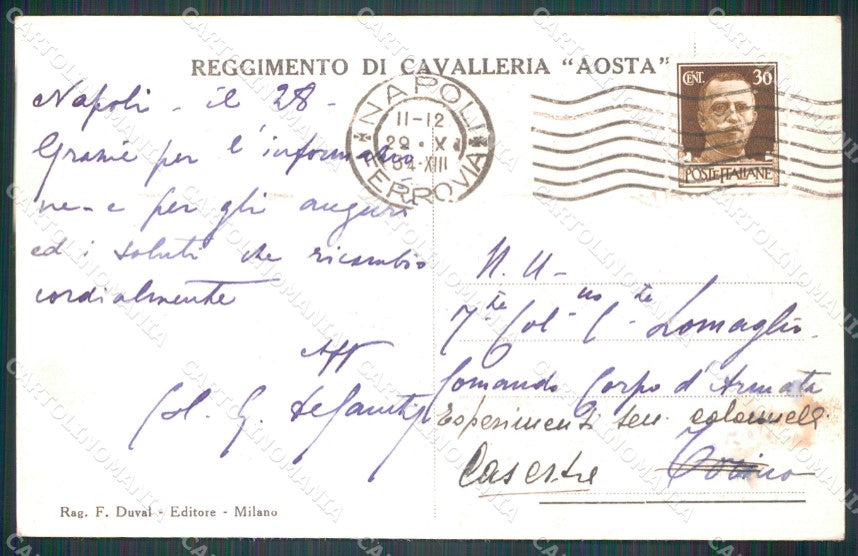 REGGIMENTO DI CAVALLERIA "AOSTA"
Napoli - il 28 -
Grazie per l'informazio
ne - e per gli auguri
ed i saluti che ricambio
cordialmente
Aff
Col. G.
NAPOLI
11-12
29 · X
34-XIII
FERROVIA
CENT. 30
POSTE ITALIANE
N. U. -
Tte Col - Cte Lomaglio
Comando Corpo d'Armata
Esperimenti ten. colonnelli
Caserta Torino
Rag. F. Duval - Editore - Milano
CARTOLINOMANIA